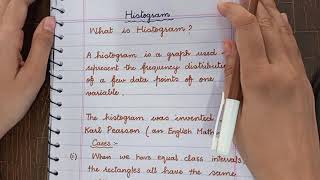 Histogram
What is Histogram?
A histogram is a graph used
represent the frequency distribut
of a few data points of one
variable.
The histogram was invented
Karl Pearson (an English Math
Cases :-
(i) When we have equal class intervals
the rectangles all have the same